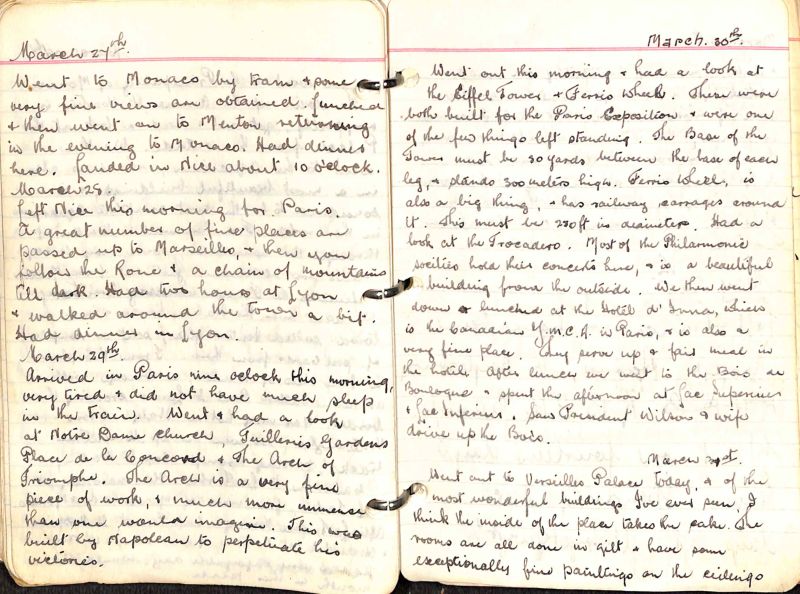 March 27th.
Went to Monaco by tram & some
very fine views are obtained. Lunched
& then went on to Menton returning
in the evening to Monaco. Had dinner
here. Landed in Nice about 10 o'clock.
March 28.
Left Nice this morning for Paris.
A great number of fine places are
passed up to Marseilles, & then you
follow the Rone & a chain of mountains
till dark. Had two hours at Lyon
& walked around the town a bit.
Had dinner in Lyon.
March 29th.
Arrived in Paris nine oclock this morning,
very tired & did not have much sleep
in the train. Went & had a look
at Notre Dame church, Tuilleries Gardens
Place de la Concord & The Arch of
Triomphe. The Arch is a very fine
piece of work, & much more immense
than one would imagine. This was
built by Napolean to perpetuate his
victories.
March. 30th.
Went out this morning & had a look at
the Eiffel Tower & Ferris Wheel. These were
both built for the Paris Exposition & were one
of the few things left standing. The Base of the
Tower must be 50 yards between the base of each
leg, & stands 300 meters high. Ferris Wheel, is
also a big thing, & has railway carrages around
it. This must be 250ft in diameters. Had a
look at the Trocadero. Most of the Philarmonic
socities hold their concerts here, & is a beautiful
building from the outside. We then went
down & lunched at the Hotel d' Iena, which
is the Canadian Y.M.C.A. in Paris, & is also a
very fine place. They serve up a fair meal in
the hotel. After lunch we went to the Bois de
Boulogne & spent the afternoon at Lac Superieus
& Lac Inferius. Saw President Wilson & wife
drive up the Bois.
March 31st.
Went out to Versilles Palace today, & of the
most wonderful buildings I've ever seen, I
think the inside of the place takes the cake. The
rooms are all done in gilt & have some
exceptionally fine paintings on the cielings